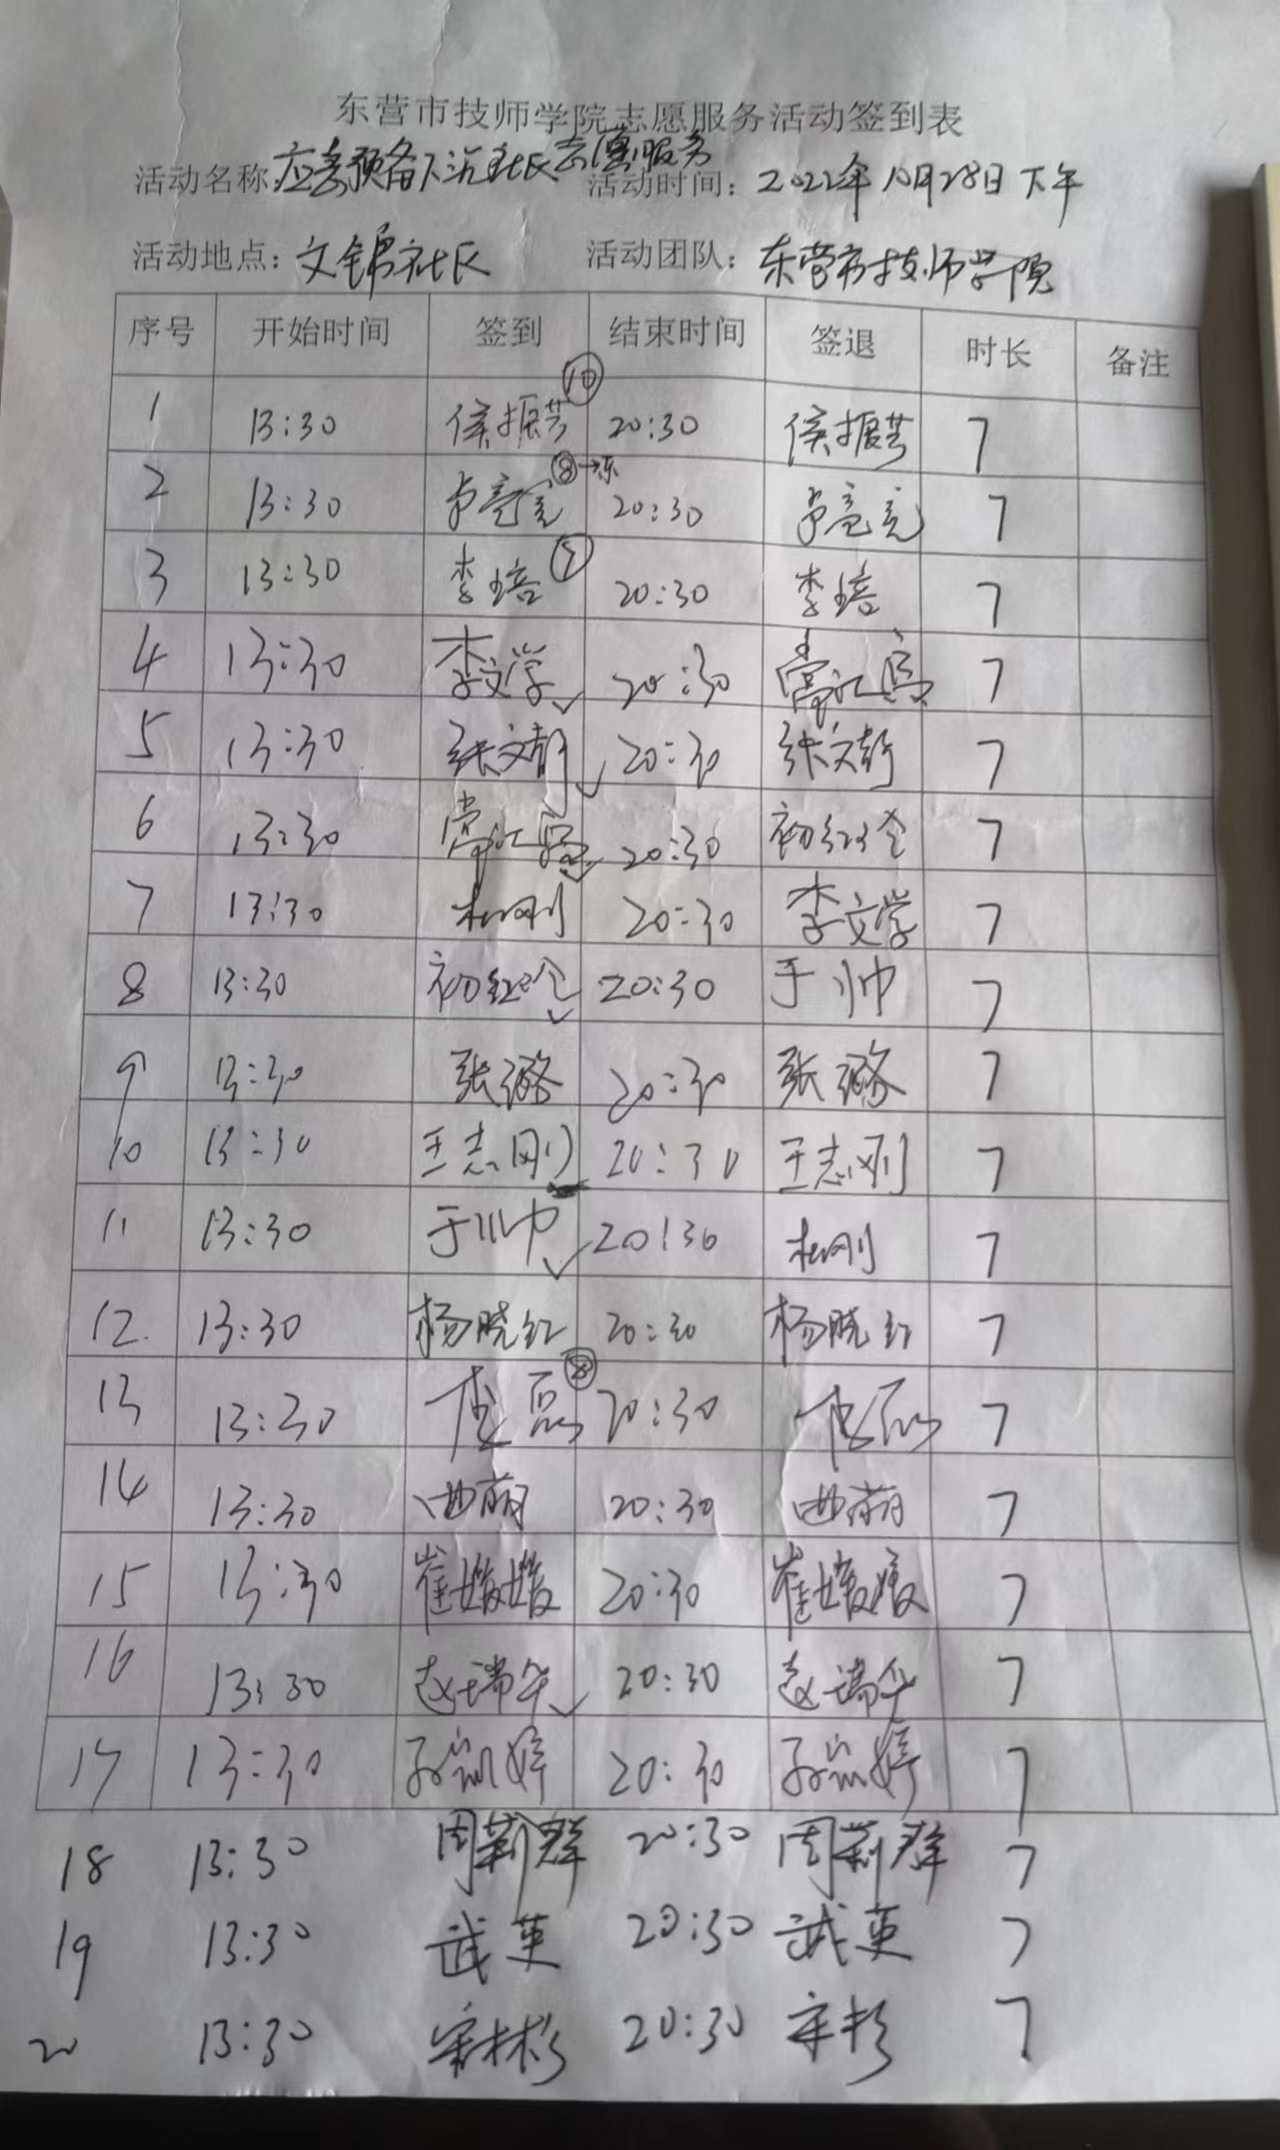 东营市技师学院志愿服务活动签到表
活动名称:应急预备下沉社区志愿服务 活动时间:2022年10月28日下午
活动地点:文锦社区 活动团队:东营市技师学院
序号 开始时间 签到 结束时间 签退 时长 备注
1 13:30 侯振芸 ⑩ 20:30 侯振芸 7
2 13:30 ⑧ 20:30 7
3 13:30 李培 20:30 李培 7
4 13:30 李文学 ✓ 20:30 7
5 13:30 张文静 ✓ 20:30 张文静 7
6 13:30 ✓ 20:30 初红全 7
7 13:30 杜刚 20:30 李文学 7
8 13:30 初红全 ✓ 20:30 于帅 7
9 13:30 张璐 20:30 张璐 7
10 13:30 王志刚 20:30 王志刚 7
11 13:30 于帅 ✓ 20:30 杜刚 7
12. 13:30 杨晓红 20:30 杨晓红 7
13 13:30 20:30 7
14 13:30 曲萌 20:30 曲萌 7
15 13:30 崔媛媛 20:30 崔媛媛 7
16 13:30 赵瑞华 ✓ 20:30 赵瑞华 7
17 13:30 孙凯婷 20:30 孙凯婷 7
18 13:30 周莉群 20:30 周莉群 7
19 13:30 武英 20:30 武英 7
20 13:30 20:30 7